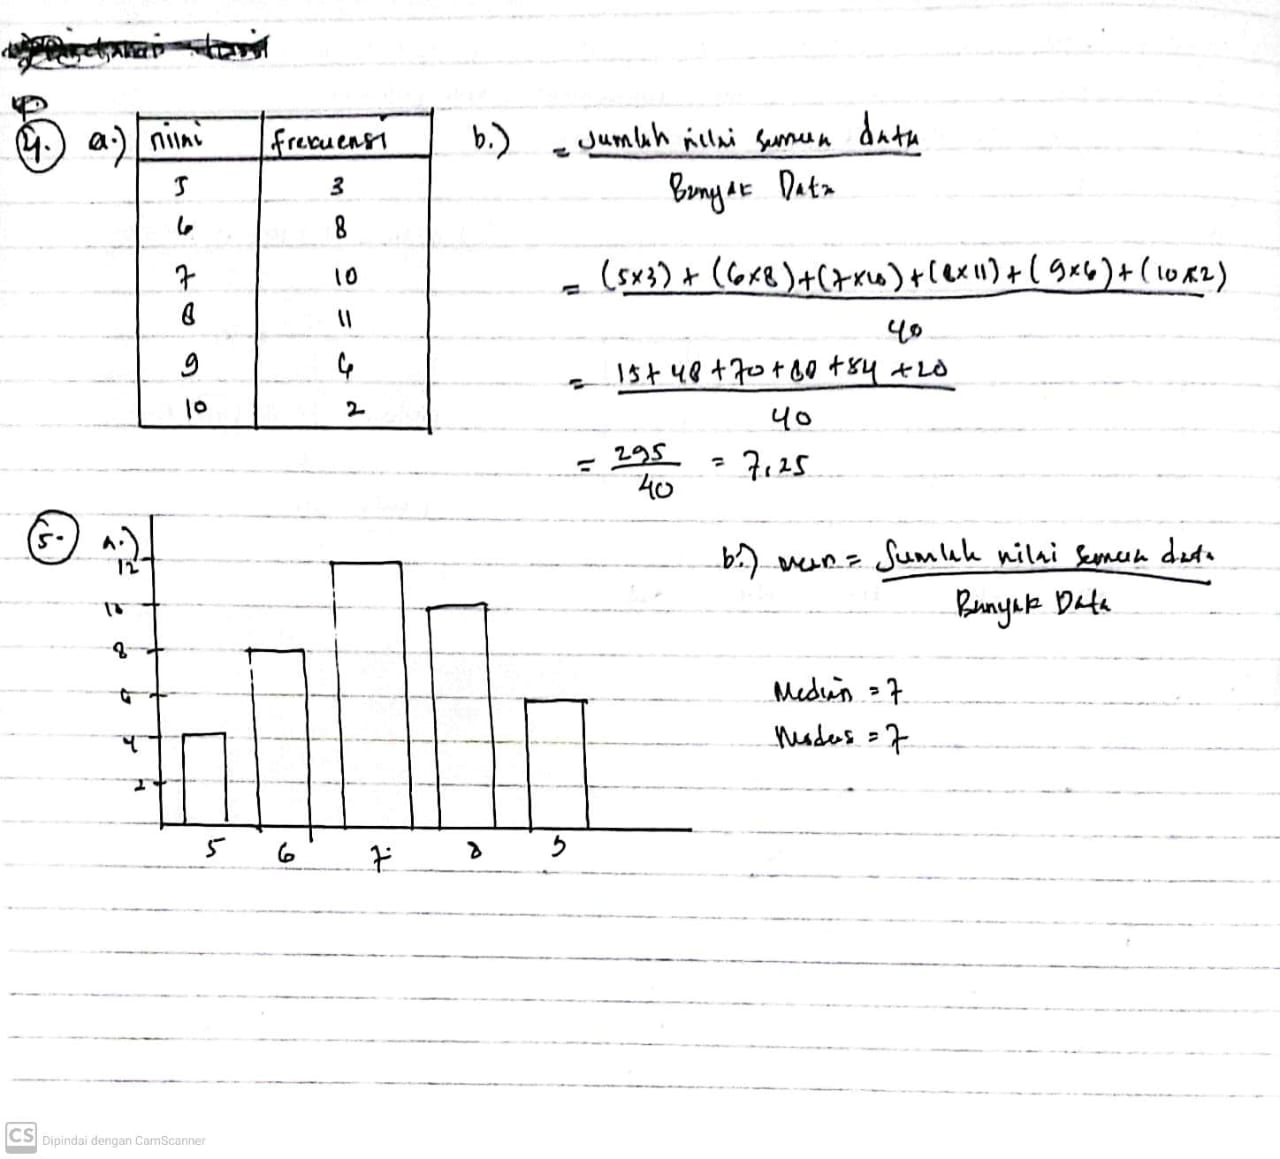 4. a.) nilai frekuensi
5 3
6 8
7 10
8 11
9 6
10 2
b.) = Jumlah nilai semua data
Banyak Data
= (5x3) + (6x8)+(7x10)+(8x11)+(9x6)+(10x2)
40
= 15+48+70+88+54+20
40
= 295 = 7,25
40
5. a.)
12
10
8
6
4
2
5 6 7 8 9
b.) mean = Jumlah nilai semua data
Banyak Data
Median = 7
Modus = 7
CS Dipindai dengan CamScanner